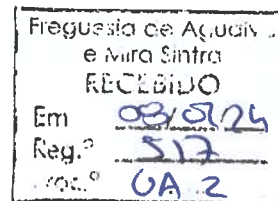 Freguesia de Agualv
e Mira Sintra
RECEBIDO
Em 08/01/24
Reg.º 517
roc.º UA 2